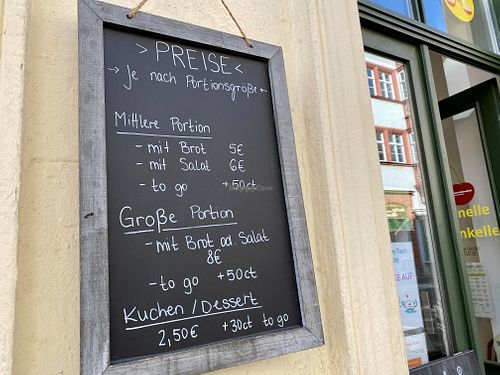 > PREISE <
→ Je nach Portionsgröße ←
Mittlere Portion
- mit Brot 5€
- mit Salat 6€
- to go +50ct
Große Portion
- mit Brot od. Salat
8€
- to go +50ct
Kuchen / Dessert
2,50€ +30ct to go
nelle
nkelle